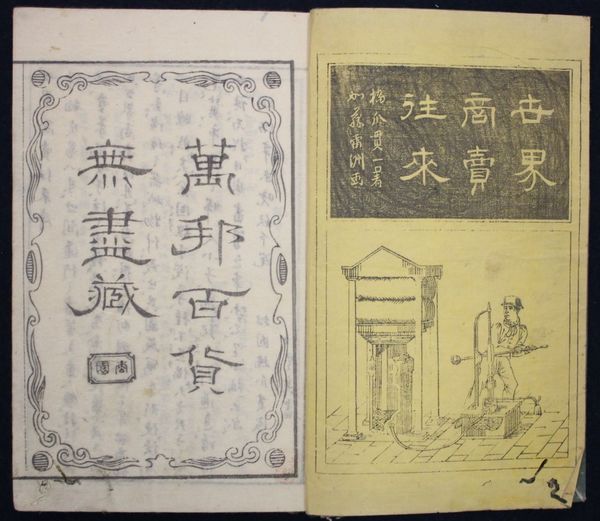 世界
商賣
往來
橋爪貫一著
洲画
萬邦百貨
無盡藏